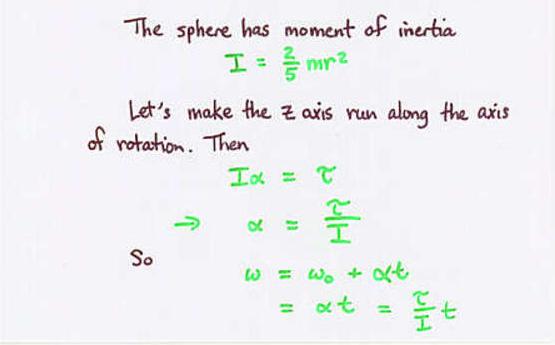 The sphere has moment of inertia
I = 2/5 mr²
Let's make the z axis run along the axis
of rotation. Then
Iα = τ
→ α = τ/I
So
ω = ω₀ + αt
= αt = τ/I t